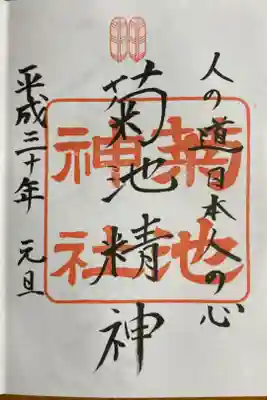 人の道日本人の心
菊池精神
菊池
神社
平成三十年 元旦